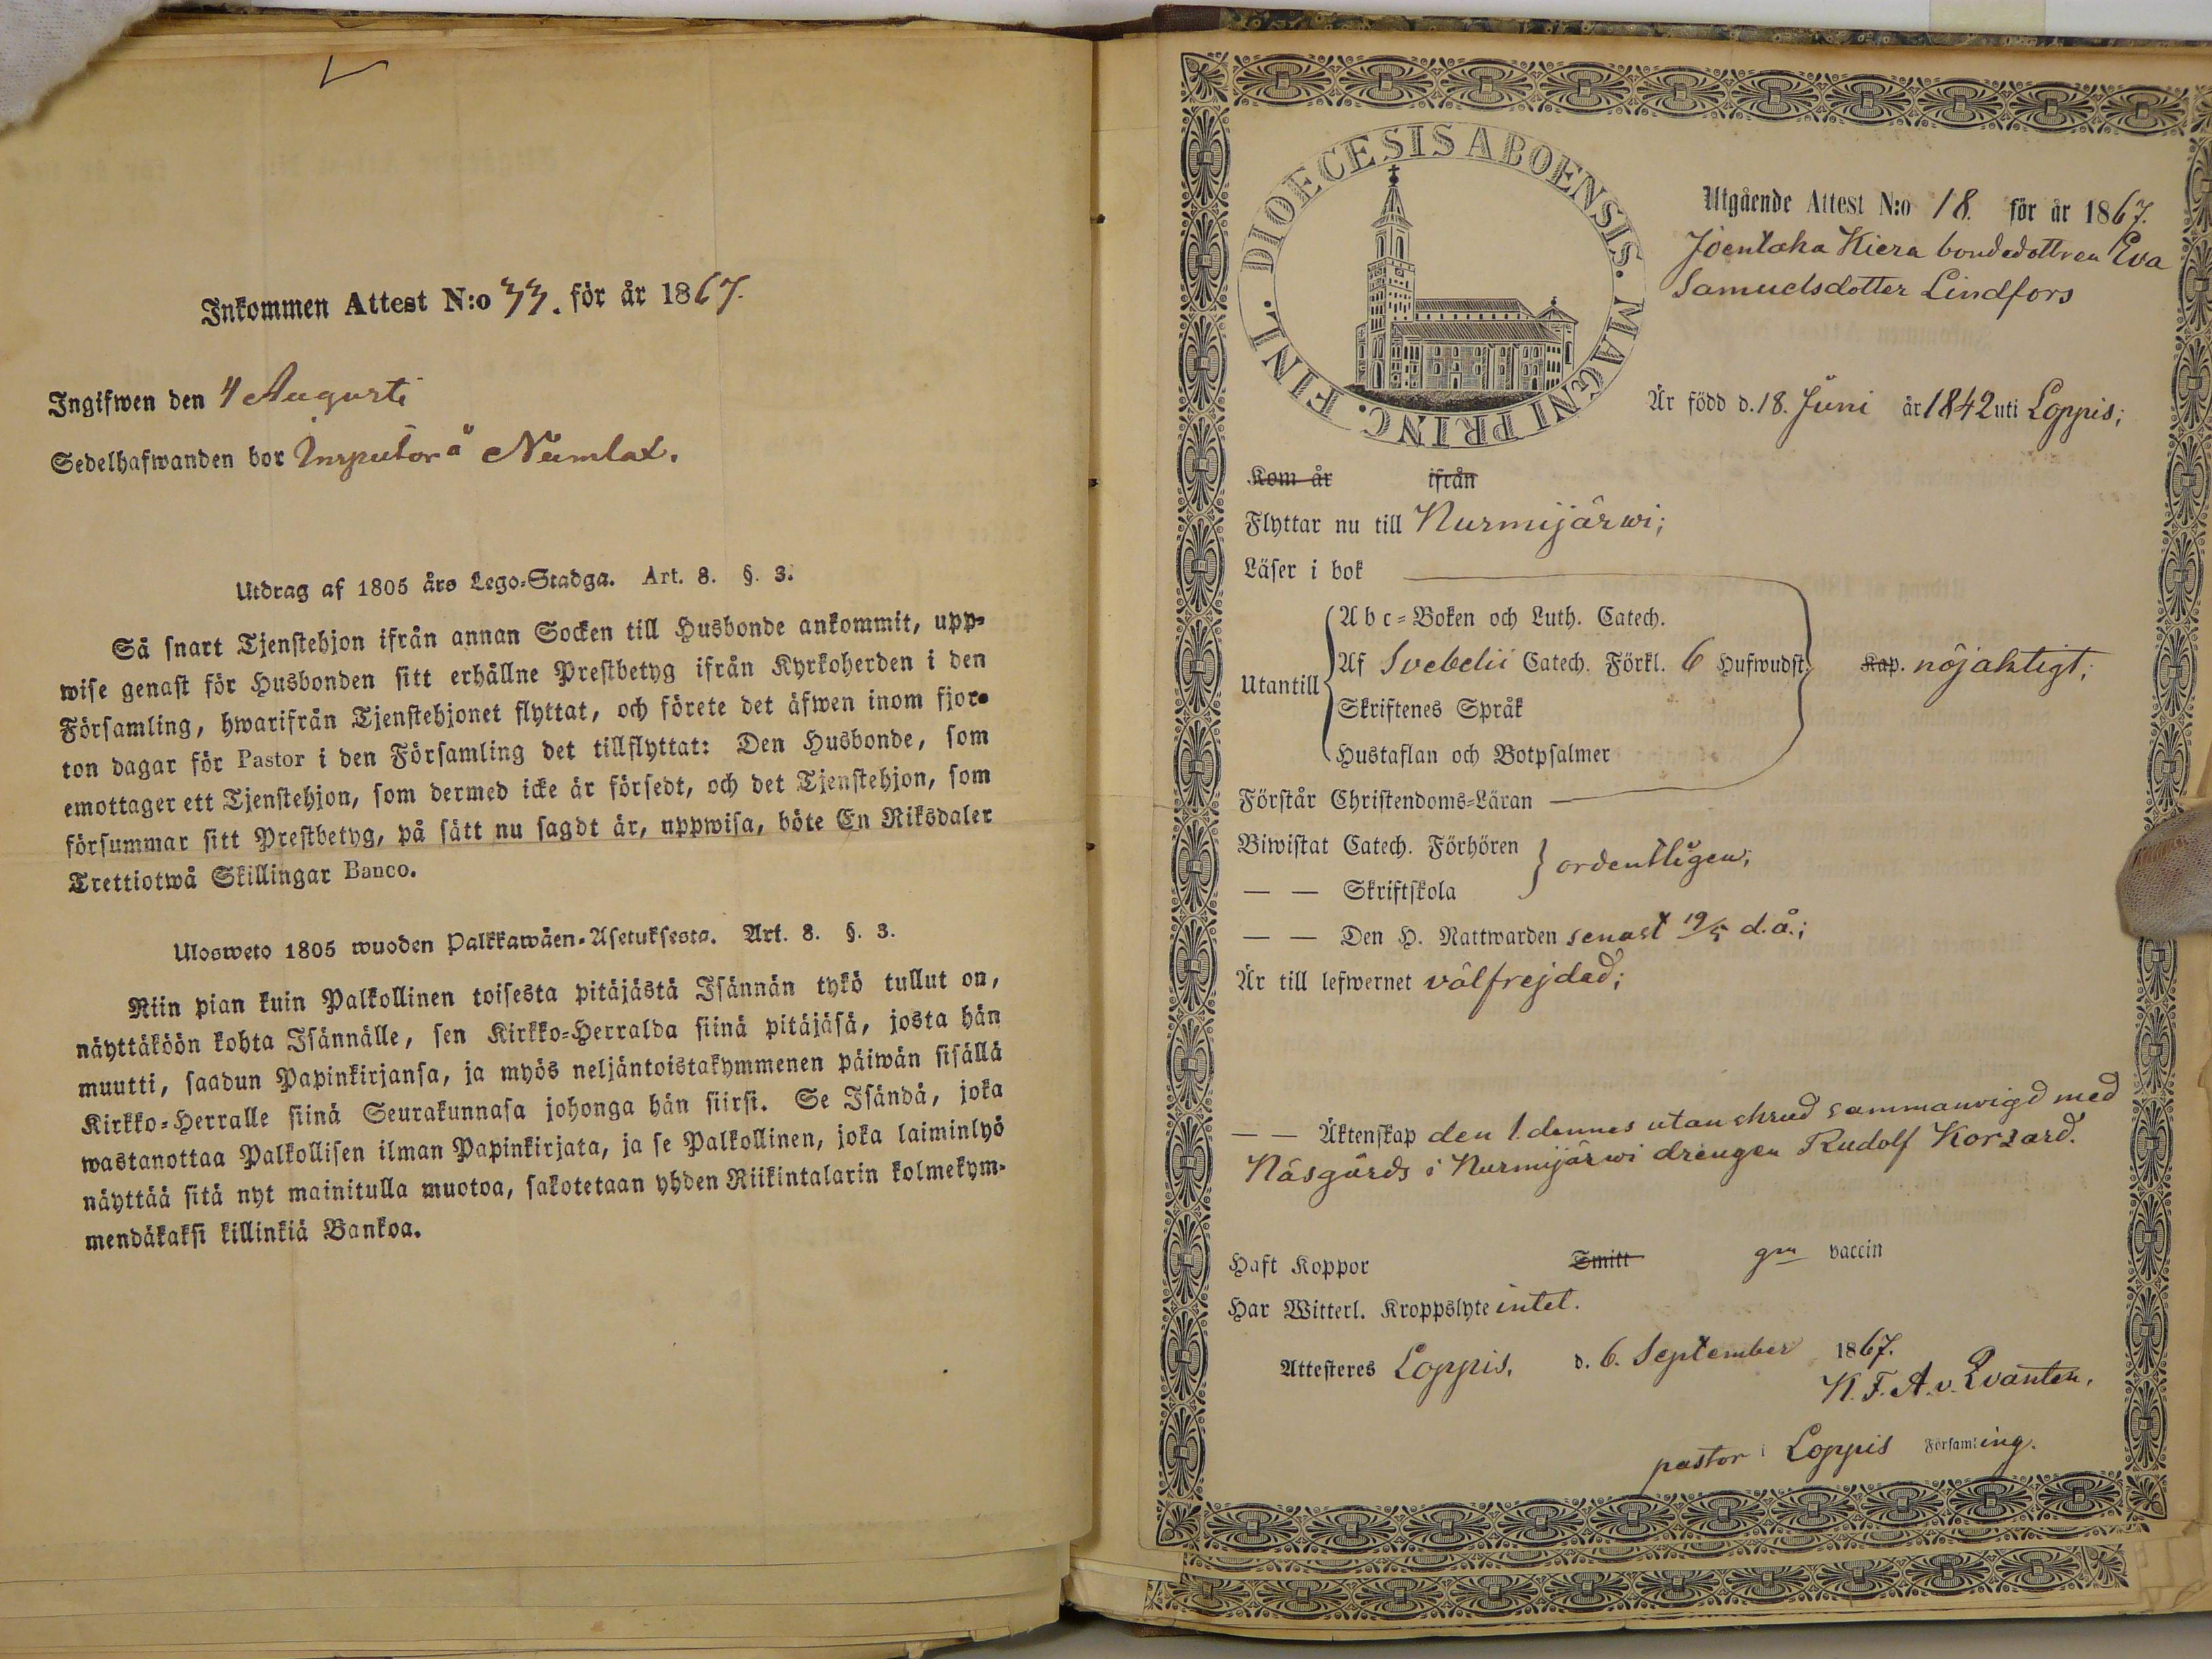 Inkommen Attest N:o 33. för år 1867.
Ingifwen den 4 Augusti
Sedelhafwanden bor Inspektor å Numlax.
Utdrag af 1805 års Lego-Stadga. Art. 8. §. 3.
Så snart Tjenstehjon ifrån annan Socken till Husbonde ankommit, upp-
wise genast för Husbonden sitt erhållne Prestbetyg ifrån Kyrkoherden i den
Församling, hwarifrån Tjenstehjonet flyttat, och förete det äfwen inom fjor-
ton dagar för Pastor i den Församling det tillflyttat: Den Husbonde, som
emottager ett Tjenstehjon, som dermed icke är försedt, och det Tjenstehjon, som
försummar sitt Prestbetyg, på sätt nu sagdt är, uppwisa, böte En Riksdaler
Trettiotwå Skillingar Banco.
Ulosweto 1805 wuoden Palkkawäen-Asetuksesta. Art. 8. §. 3.
Niin pian kuin Palkollinen toisesta pitäjästä Isännän tykö tullut on,
näyttäköön kohta Isännälle, sen Kirkko-Herralda siinä pitäjäsä, josta hän
muutti, saadun Papinkirjansa, ja myös neljäntoistakymmenen päiwän sisällä
Kirkko-Herralle siinä Seurakunnasa johonga hän siirsi. Se Isändä, joka
wastanottaa Palkollisen ilman Papinkirjata, ja se Palkollinen, joka laiminlyö
näyttää sitä nyt mainitulla muotoa, sakotetaan yhden Riikintalarin kolmekym-
mendäkaksi killinkiä Bankoa.
DIOECESIS ABOENSIS. MAGNI PRINC. FINL.
Utgående Attest N:o 18. för år 1867.
Joentaka Kiera bondedottren Eva
Samuelsdotter Lindfors
Är född d. 18. Juni år 1842 uti Loppis;
Kom år ifrån
Flyttar nu till Nurmijärwi;
Läser i bok
Abc-Boken och Luth. Catech.
Utantill Af Svebelii Catech. Förkl. 6 Hufwudst. Kap. nöjaktigt;
Skriftenes Språk
Hustaflan och Botpsalmer
Förstår Christendoms-Läran
Biwistat Catech. Förhören ordentligen;
— — Skriftskola
— — Den H. Nattwarden senast 19/5 d.å.;
Är till lefwernet välfrejdad;
— — Äktenskap den 1. dennes utan skrud sammanvigd med
Näsgårds i Nurmijärwi drengen Rudolf Korsard.
Haft Koppor Smitt gm vaccin
Har Witterl. Kroppslyte intet.
Attesteres Loppis, d. 6. September 1867.
K. F. A. v. Qvanten,
pastor i Loppis Församling.